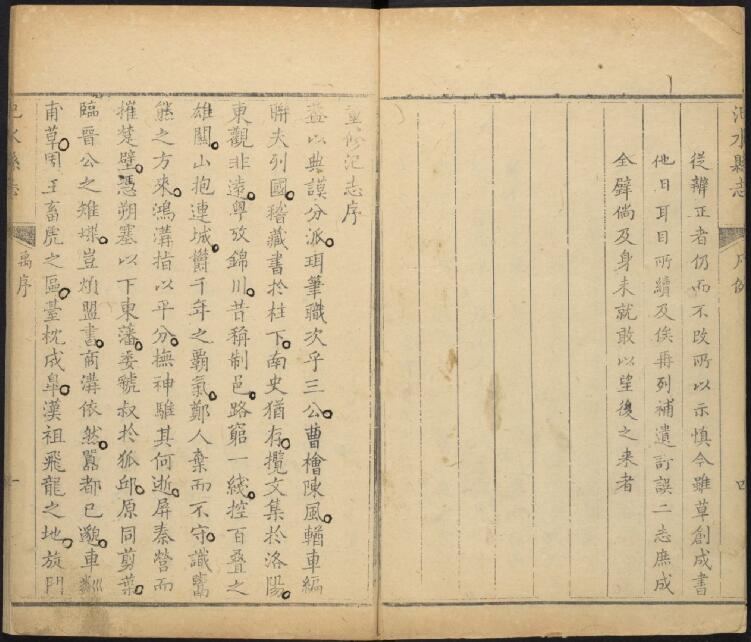 汜水縣志
凡例
四
從辨正者仍而不改所以示慎今雖草創成書
他日耳目所續及俟再列補遺訂誤二志庶成
全璧倘及身未就敢以望後之來者
重修汜志序
蓋以典謨分派珥筆職次乎三公曹檜陳風輶車編
聨夫列國稽藏書於柱下南史猶存攬文集於洛陽
東觀非遠粤攷錦川昔稱制邑路窮一綫控百叠之
雄關山抱連城欝千年之霸氣鄭人棄而不守讖鸑
熊之方來鴻溝指以平分撫神騅其何逝屏秦營而
摧楚壁憑朔塞以下東藩委虢叔於狐邱原同剪葉
臨晉公之雉堞豈煩盟書商溝依然嚣都已邈車
甫草周王畜虎之區臺枕成臯漢祖飛龍之地旋門
汜水縣志
禹序
一